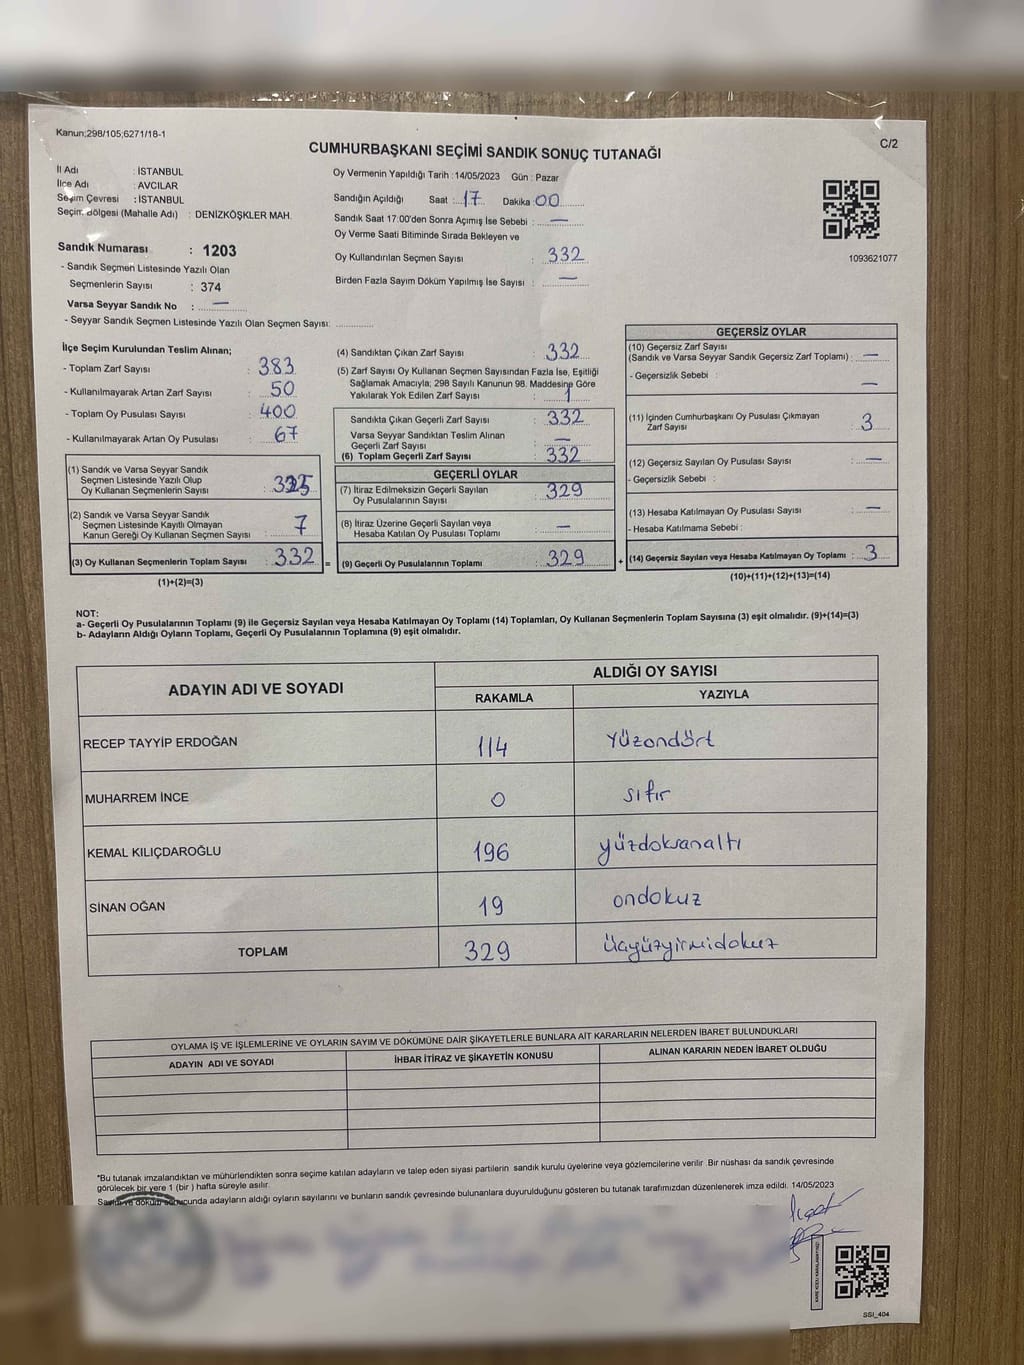 Kanun;298/105;6271/18-1
C/2
CUMHURBAŞKANI SEÇİMİ SANDIK SONUÇ TUTANAĞI
İl Adı : İSTANBUL
İlçe Adı : AVCILAR
Seçim Çevresi : İSTANBUL
Seçim Bölgesi (Mahalle Adı) : DENİZKÖŞKLER MAH.
Sandık Numarası : 1203
- Sandık Seçmen Listesinde Yazılı Olan
Seçmenlerin Sayısı : 374
Varsa Seyyar Sandık No : —
- Seyyar Sandık Seçmen Listesinde Yazılı Olan Seçmen Sayısı:
Oy Vermenin Yapıldığı Tarih : 14/05/2023 Gün : Pazar
Sandığın Açıldığı Saat : 17 Dakika : 00
Sandık Saat 17:00'den Sonra Açımış İse Sebebi : —
Oy Verme Saati Bitiminde Sırada Bekleyen ve
Oy Kullandırılan Seçmen Sayısı : 332
Birden Fazla Sayım Döküm Yapılmış İse Sayısı : —
1093621077
İlçe Seçim Kurulundan Teslim Alınan;
- Toplam Zarf Sayısı : 383
- Kullanılmayarak Artan Zarf Sayısı : 50
- Toplam Oy Pusulası Sayısı : 400
- Kullanılmayarak Artan Oy Pusulası : 67
(1) Sandık ve Varsa Seyyar Sandık
Seçmen Listesinde Yazılı Olup
Oy Kullanan Seçmenlerin Sayısı : 325
(2) Sandık ve Varsa Seyyar Sandık
Seçmen Listesinde Kayıtlı Olmayan
Kanun Gereği Oy Kullanan Seçmen Sayısı : 7
(3) Oy Kullanan Seçmenlerin Toplam Sayısı : 332 =
(1)+(2)=(3)
(4) Sandıktan Çıkan Zarf Sayısı : 332
(5) Zarf Sayısı Oy Kullanan Seçmen Sayısından Fazla İse, Eşitliği
Sağlamak Amacıyla; 298 Sayılı Kanunun 98. Maddesine Göre
Yakılarak Yok Edilen Zarf Sayısı : 1
Sandıkta Çıkan Geçerli Zarf Sayısı : 332
Varsa Seyyar Sandıktan Teslim Alınan
Geçerli Zarf Sayısı : —
(6) Toplam Geçerli Zarf Sayısı : 332
GEÇERLİ OYLAR
(7) İtiraz Edilmeksizin Geçerli Sayılan
Oy Pusulalarının Sayısı : 329
(8) İtiraz Üzerine Geçerli Sayılan veya
Hesaba Katılan Oy Pusulası Toplamı : —
(9) Geçerli Oy Pusulalarının Toplamı : 329 +
GEÇERSİZ OYLAR
(10) Geçersiz Zarf Sayısı
(Sandık ve Varsa Seyyar Sandık Geçersiz Zarf Toplamı) : —
- Geçersizlik Sebebi : —
(11) İçinden Cumhurbaşkanı Oy Pusulası Çıkmayan
Zarf Sayısı : 3
(12) Geçersiz Sayılan Oy Pusulası Sayısı : —
- Geçersizlik Sebebi :
(13) Hesaba Katılmayan Oy Pusulası Sayısı : —
- Hesaba Katılmama Sebebi :
(14) Geçersiz Sayılan veya Hesaba Katılmayan Oy Toplamı : 3
(10)+(11)+(12)+(13)=(14)
NOT:
a- Geçerli Oy Pusulalarının Toplamı (9) ile Geçersiz Sayılan veya Hesaba Katılmayan Oy Toplamı (14) Toplamları, Oy Kullanan Seçmenlerin Toplam Sayısına (3) eşit olmalıdır. (9)+(14)=(3)
b- Adayların Aldığı Oyların Toplamı, Geçerli Oy Pusulalarının Toplamına (9) eşit olmalıdır.
ADAYIN ADI VE SOYADI
ALDIĞI OY SAYISI
RAKAMLA YAZIYLA
RECEP TAYYİP ERDOĞAN 114 Yüzondört
MUHARREM İNCE 0 sıfır
KEMAL KILIÇDAROĞLU 196 yüzdoksanaltı
SİNAN OĞAN 19 ondokuz
TOPLAM 329 üçyüzyirmidokuz
OYLAMA İŞ VE İŞLEMLERİNE VE OYLARIN SAYIM VE DÖKÜMÜNE DAİR ŞİKAYETLERLE BUNLARA AİT KARARLARIN NELERDEN İBARET BULUNDUKLARI
ADAYIN ADI VE SOYADI İHBAR İTİRAZ VE ŞİKAYETİN KONUSU ALINAN KARARIN NEDEN İBARET OLDUĞU
*Bu tutanak imzalandıktan ve mühürlendikten sonra seçime katılan adayların ve talep eden siyasi partilerin sandık kurulu üyelerine veya gözlemcilerine verilir. Bir nüshası da sandık çevresinde
görülecek bir yere 1 (bir ) hafta süreyle asılır.
Sayım ve döküm sonucunda adayların aldığı oyların sayılarını ve bunların sandık çevresinde bulunanlara duyurulduğunu gösteren bu tutanak tarafımızdan düzenlenerek imza edildi. 14/05/2023
SSI_404